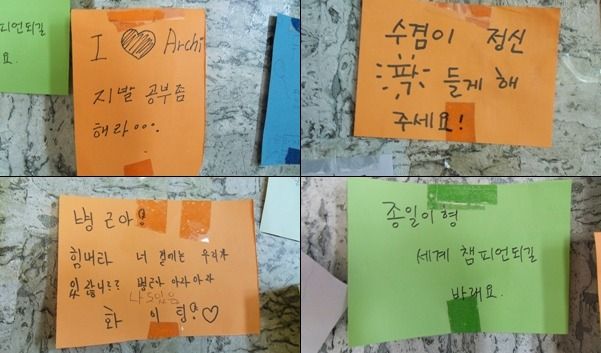 피언되길
요.
I ♡ Archi
지발 공부좀
해라....
수겸이 정신
팍 들게 해
주세요!
병근아!
힘내라 너 곁에는 우리가
있잖니
나도있음
화 이 팅! ♡
종일이형
세계 챔피언되길
바래요.